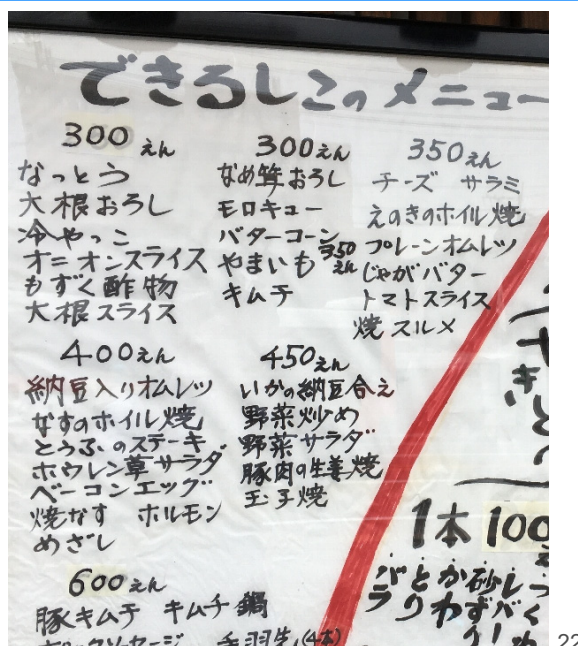 できるしこのメニュー
300えん
なっとう
大根おろし
冷やっこ
オニオンスライス
もずく酢物
大根スライス
300えん
なめ茸おろし
モロキュー
バターコーン
やまいも 350えん
キムチ
350えん
チーズ サラミ
えのきのホイル焼
プレーンオムレツ
じゃがバター
トマトスライス
焼スルメ
400えん
納豆入りオムレツ
なすのホイル焼
とうふのステーキ
ホウレン草サラダ
ベーコンエッグ
焼なす ホルモン
めざし
450えん
いかの納豆合え
野菜炒め
野菜サラダ
豚肉の生姜焼
玉子焼
600えん
豚キムチ キムチ鍋
手羽先(4本)
やきとり
1本100
バラ
とり
かわ
砂ずり
しつ
22